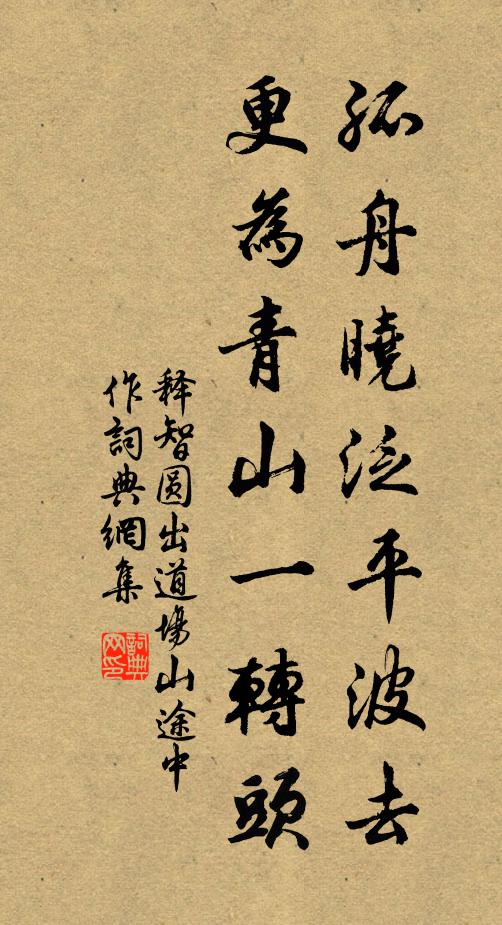 孤舟曉泛平波去
更為青山一轉頭
释智圆出道場山途中
作詞典網集
詞典網印